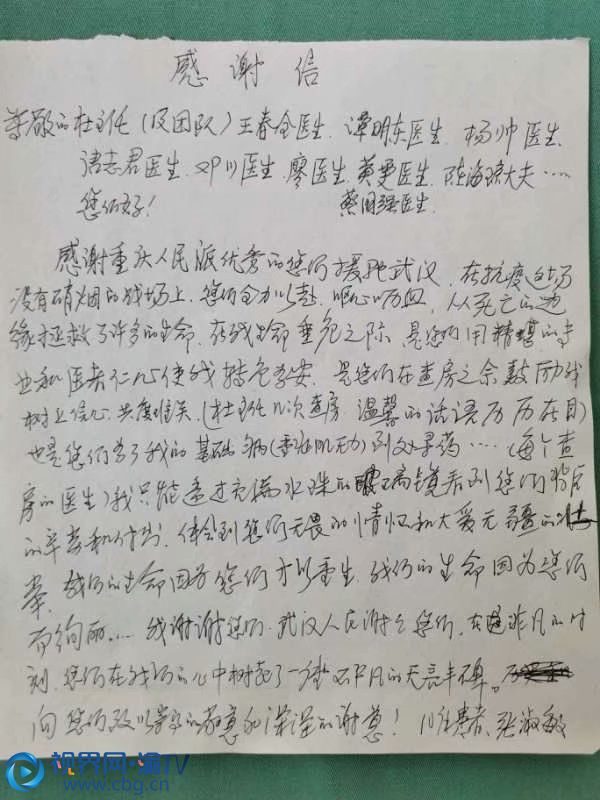 感谢信
尊敬的杜主任(及团队)王春全医生、谭明东医生、杨帅医生、
诸志君医生、邓川医生、廖医生、黄斐医生、陈海琼大夫……
您们好! 蔡国强医生
感谢重庆人民派优秀的您们援驰武汉,在抗疫这场
没有硝烟的战场上,您们全力以赴,呕心沥血,从死亡的边
缘拯救了许多的生命,在我生命垂危之际,是您们用精堪的专
业和医者仁心使我转危为安,是您们在查房之余鼓励我
树立信心,共度难关。(杜主任几次查房,温馨的话语历历在目)
也是您们为了我的基础病(重症肌无力)到处寻药……(每个查
房的医生)我只能透过充满水珠的眼镜看到您们背后
的辛劳和付出,体会到您们无畏的情怀和大爱无疆的壮
举,我们的生命因为您们才以重生,我们的生命因为您们
而绚丽……我谢谢您们,武汉人民谢谢您们,在这非凡的时
刻,您们在我们的心中树起了一座不凡的天亮丰碑。
向您们致以崇高的敬意和深深的谢意! 患者 张淑敏
视界网·渝TV
www.cbg.cn